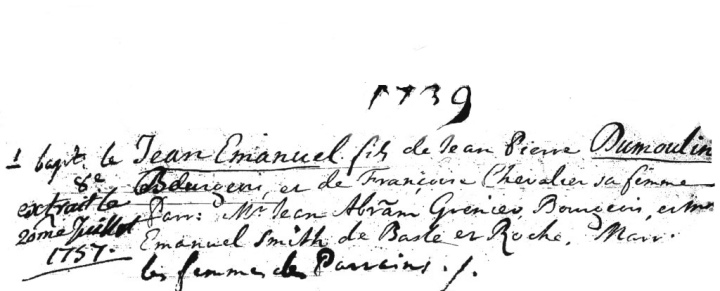 1739
1 bapt. le Jean Emanuel fils de Jean Pierre Dumoulin
8e Bourgeois, et de Françoise Chevalier sa femme
extrait le Parr: Mr. Jean Abram Grenier, Bourgeois, et Mr
20me Juillet Emanuel Smith de Basle et Roche, Marr:
1757. les femmes des Parrains ./.